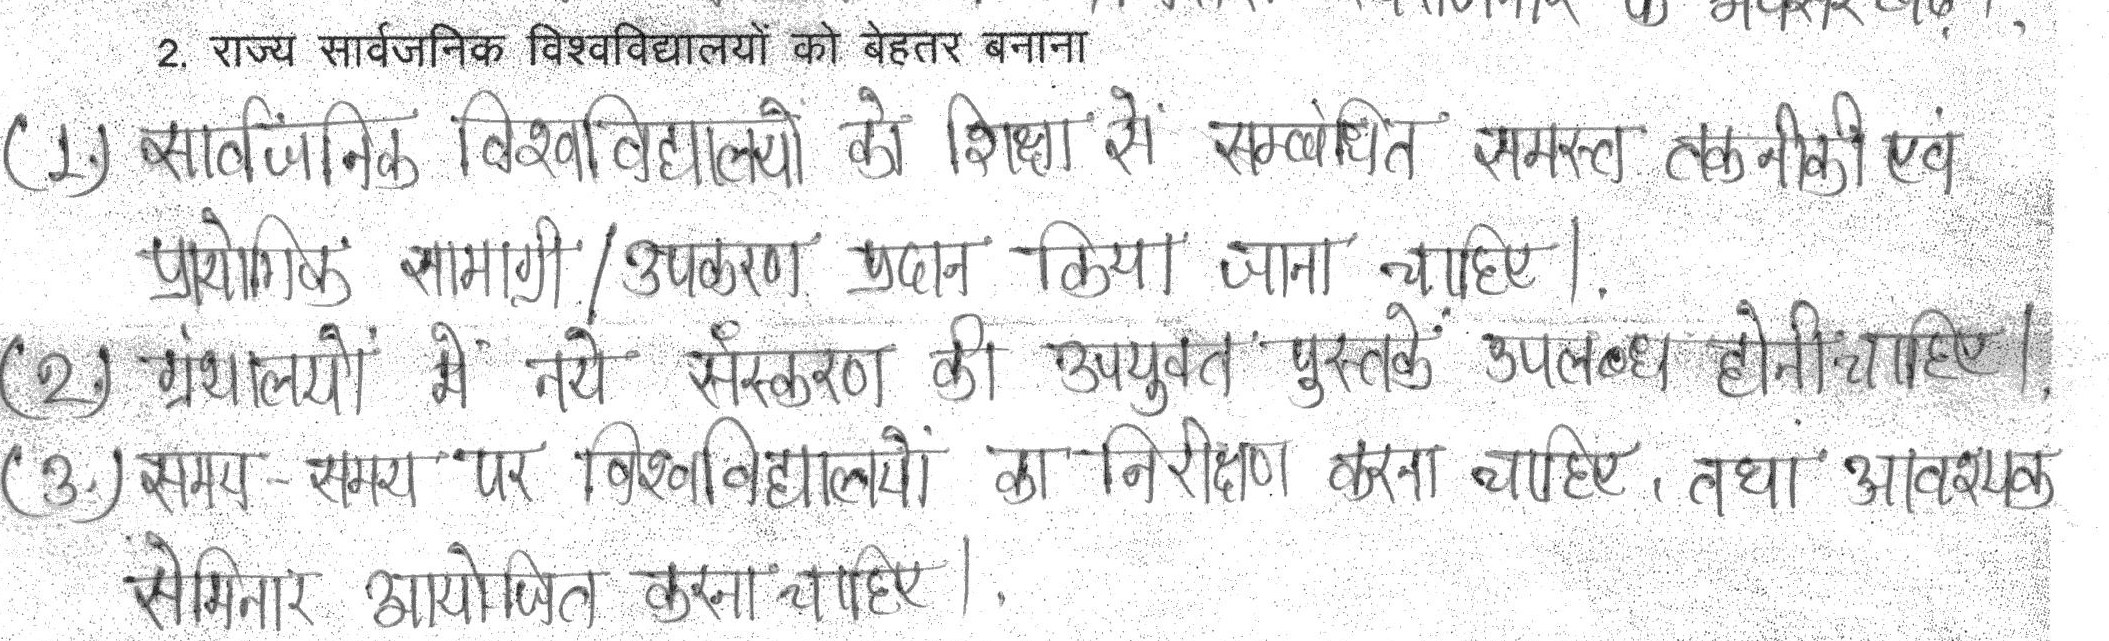 2. राज्य सार्वजनिक विश्वविद्यालयों को बेहतर बनाना
(1.) सार्वजनिक विश्वविद्यालयों को शिक्षा से सम्बंधित समस्त तकनीकी एवं
प्रायोगिक सामाग्री / उपकरण प्रदान किया जाना चाहिए |.
(2.) ग्रंथालयों में नये संस्करण की उपयुक्त पुस्तकें उपलब्ध होनी चाहिए |.
(3.) समय - समय पर विश्वविद्यालयों का निरीक्षण करना चाहिए, तथा आवश्यक
सेमिनार आयोजित करना चाहिए |.